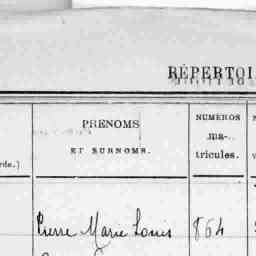 RÉPERTOI
PRENOMS
ET SURNOMS.
NUMÉROS
ma-
tricules.
rde.)
Pierre Marie Louis 864